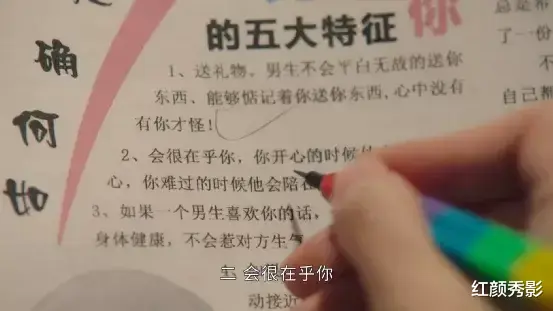 确
何
如
你
的五大特征
1、送礼物。男生不会平白无故的送你
东西、能够惦记着你送你东西,心中没有
有你才怪!
2、会很在乎你,你开心的时候
心,你难过的时候他会陪在
3、如果一个男生喜欢你的话,
身体健康,不会惹对方生气
动接近
总是
了一份
自己
二 会很在乎你
红颜秀影